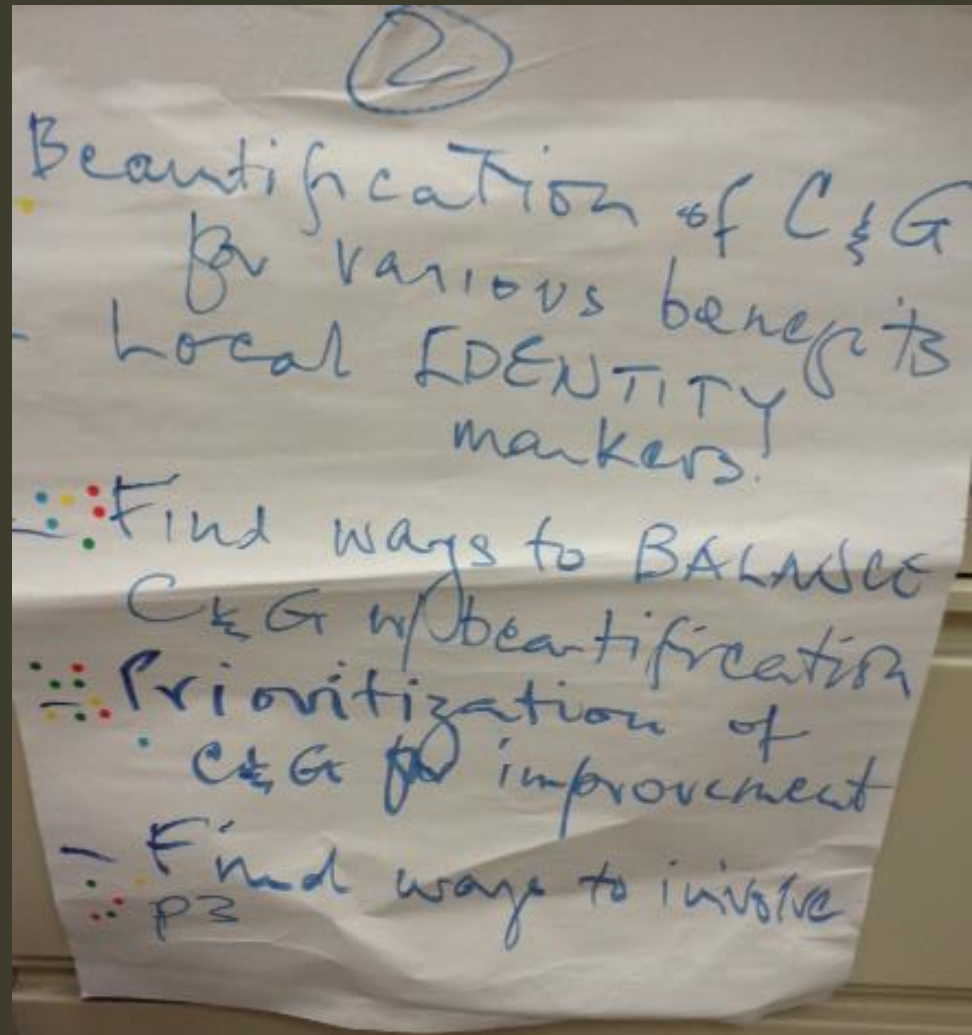 2
Beautification of C&G
for various benefits
- Local IDENTITY
markers!
- Find ways to BALANCE
C&G w/ beautification
- Prioritization of
C&G for improvement
- Find ways to involve
P3